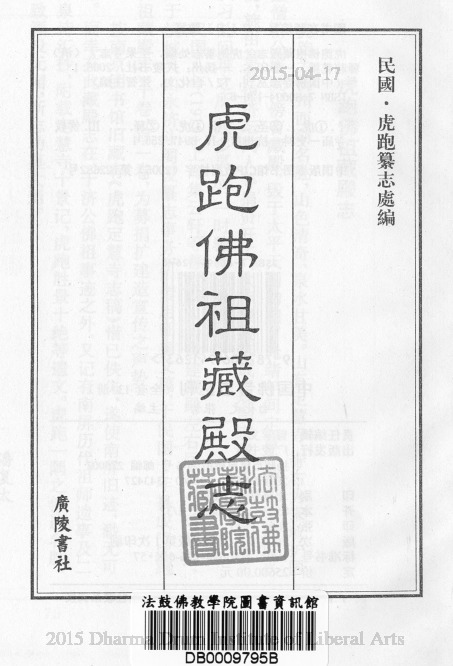 2015-04-17
民國・虎跑纂志處編
虎跑佛祖藏殿志
廣陵書社
法鼓佛教學院圖書資訊館
2015 Dharma Drum Institute of Liberal Arts
DB0009795B